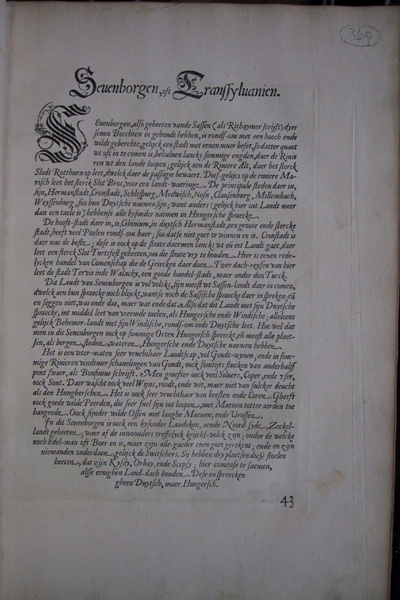 360
Sevenborgen, oft Transsylvanien.
Sevenborgen, also geheeten vande Sassen (als Rithaymer scrijft) dyer
seven Borchten in gebondt hebben, is rondt-om met een hooch ende
wildt geberchte, gelijck een stadt met eenen muer beset, so datter quaet
uyt oft in te comen is, behalven lancks sommige engden, daer de
ren uyt den lande loopen; gelijck aen de Riviere Alt, daer het sterck
Slodt Rotthurn op leet, twelck daer de passagie bewaert. Desgelijcx op de riviere Ma-
risch leet het sterck Slot Brot, voor een landt-weeringe. De principale steden daer in,
sijn, Hermenstadt, Cronstadt, Schlesburg, Medwisch, Nosn, Clausenburg, Millembach,
Weyssenburg, soo hun Duytsche naemen sijn; want anders (gelijck hier int Landt meer
dan een taele is) hebbense alle bysonder naemen in Hungersche spraecke.
De hooft-stadt daer in, is Cibinium, in duytsch Hermenstadt, een groote ende stercke
stadt, heeft veel Poelen rondt-om haer; soo datse niet goet te winnen en is. Cronstadt is
daer nae de beste; dese is oock op de strate daermen lancks uyt int Landt gaet, daer
leet een sterck Slot Turtsfest geheeten, om die strate vry te houden. Hier is eenen rede-
lycken handel van Comenschap die de Griecken daer dien. Twee dach-reysen van hier
leet de stadt Tervis inde Walachy, een goede handel-stadt, maer onder den Turck.
Dit Landt van Sevenborgen is vol volcks, sijn meest uyt Sassen-landt daer in comen,
dwelck aen hun spraecke noch blijckt, want se noch de Sassische spraecke daer in spreken, en
en seggen niet, was ende das, maer wat ende dat. Also dat dit Landt met sijn Duytsche
spraecke, int middel leet van vreemde taelen, als Hungersche ende Windische, alleleens
gelijck Behemer-Landt met sijn Windische, rondt-om inde Duytsche leet. Hoe wel dat
men in dit Sevenborgen oock op sommige Orten Hungersch spreeckt, en meest alle plaet-
sen, als bergen, steden, wateren, Hungersche ende Duytsche naemen hebben.
Het is een uter-maten seer vruchtbaer Landtschap, vol Goudt-mynen, ende in som-
mige Rivieren vindtmer schaelingen van Goudt, oock somtyts stucken van anderhalff
pont swaer, als Bonfinius schrijft. Men graefter oock veel Silver, Coper, ende Yser,
oock Sout. Daer wascht oock veel Wijns, roodt, ende wit, maer niet van sulcker deucht
als den Hungherschen. Het is oock seer vruchtbaer van beesten ende Coren. Gheeft
oock goede wilde Peerden, die seer snel sijn int loopen, met Maenen totter aerden toe
hangende. Oock sijnder wilde Ossen met langhe Maenen; ende Urossen.
In dit Sevenborgen is oock een bysonder Landeken, aende Noord-sijde, Zeckel-
landt geheeten; waer af de inwoonders treffelijck krijchs-volck zijn; onder de welcke
noch Edel-man oft Boer en is, maer zijn alle-gader even goet gerekent, ende en zijn
niemanden onderdaen, gelijck de Switsers. Sy hebben dry plaetsen diese stoelen
heeten, dat zijn Kysdy, Orbay, ende Scepsy; hier comense te saemen,
alsse eenighen Land-dach houden. Dese en spreecken
gheen Duytsch, maer Hungersch.
43